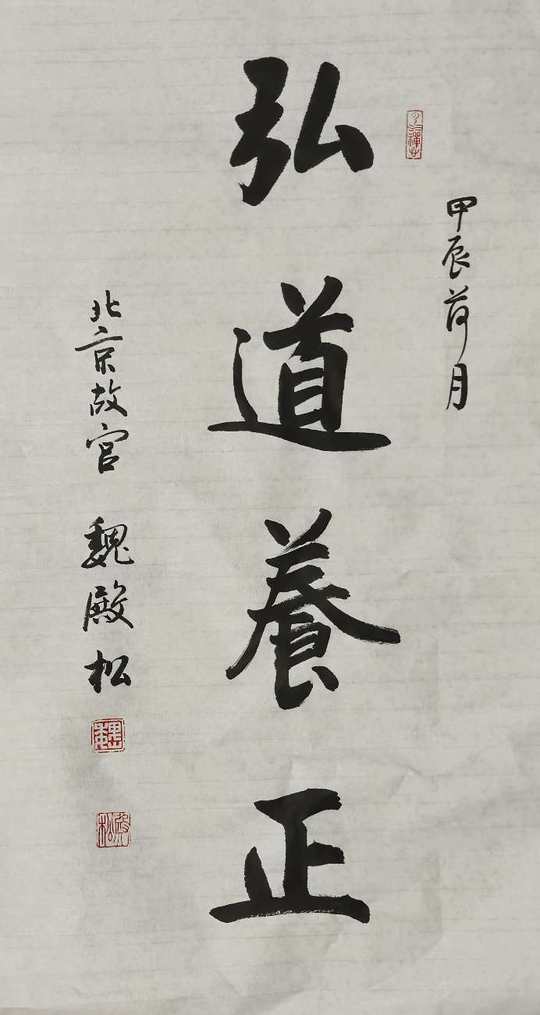 甲辰荷月
弘道養正
北京故宫 魏殿松
魏